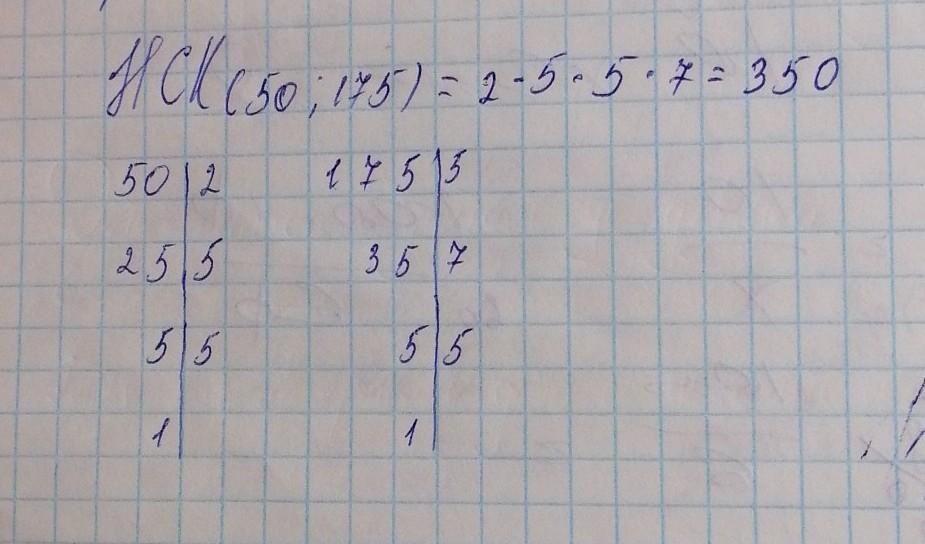 НСК(50;175) = 2·5·5·7 = 350
50|2 175|5
25|5 35|7
5|5 5|5
1| 1|